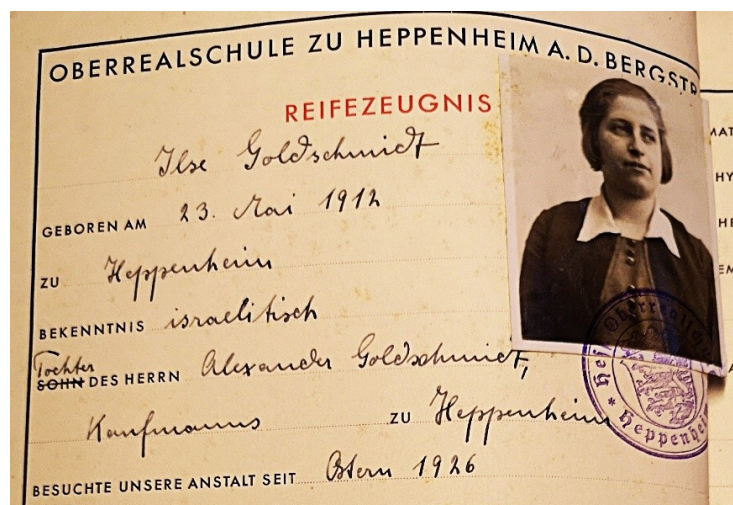 OBERREALSCHULE ZU HEPPENHEIM A. D. BERGSTR
REIFEZEUGNIS
Ilse Goldschmidt
GEBOREN AM 23. Mai 1912
ZU Heppenheim
BEKENNTNIS israelitisch
Tochter
SOHN DES HERRN Alexander Goldschmidt,
Kaufmanns ZU Heppenheim
BESUCHTE UNSERE ANSTALT SEIT Ostern 1926
Hess. Oberrealschule
* Heppenheim
MAT
HY
HE
EM